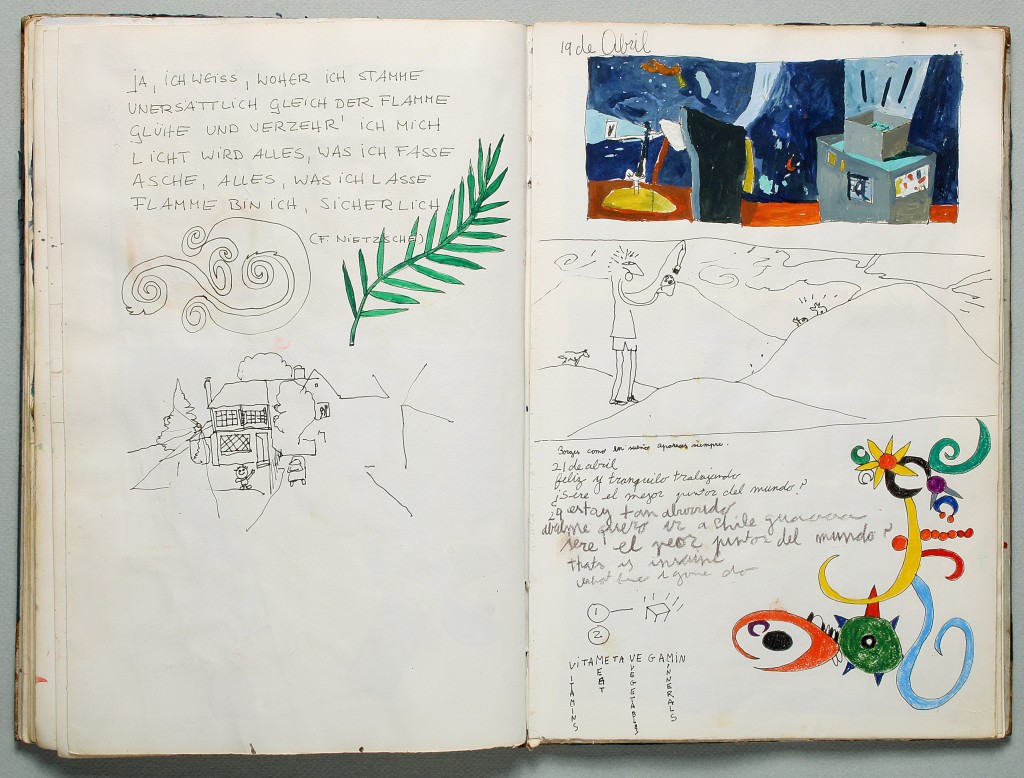 JA, ICH WEISS, WOHER ICH STAMME
UNERSATTLICH GLEICH DER FLAMME
GLÜHE UND VERZEHR' ICH MICH
LICHT WIRD ALLES, WAS ICH FASSE
ASCHE, ALLES, WAS ICH LASSE
FLAMME BIN ICH, SICHERLICH
(F. NIETZSCHE)
19 de Abril
Borges como los sueños aparece siempre.
21 de abril
feliz y tranquilo trabajando
¿Sere el mejor pintor del mundo?
29 estoy tan aburrido
abril me quero ir a chile guaaaa
sere el peor pintor del mundo?
thats is insaine
what
1
2
VITAMETAVEGAMIN
VITAMINS
MEAT
VEGETABLS
MINNERALS